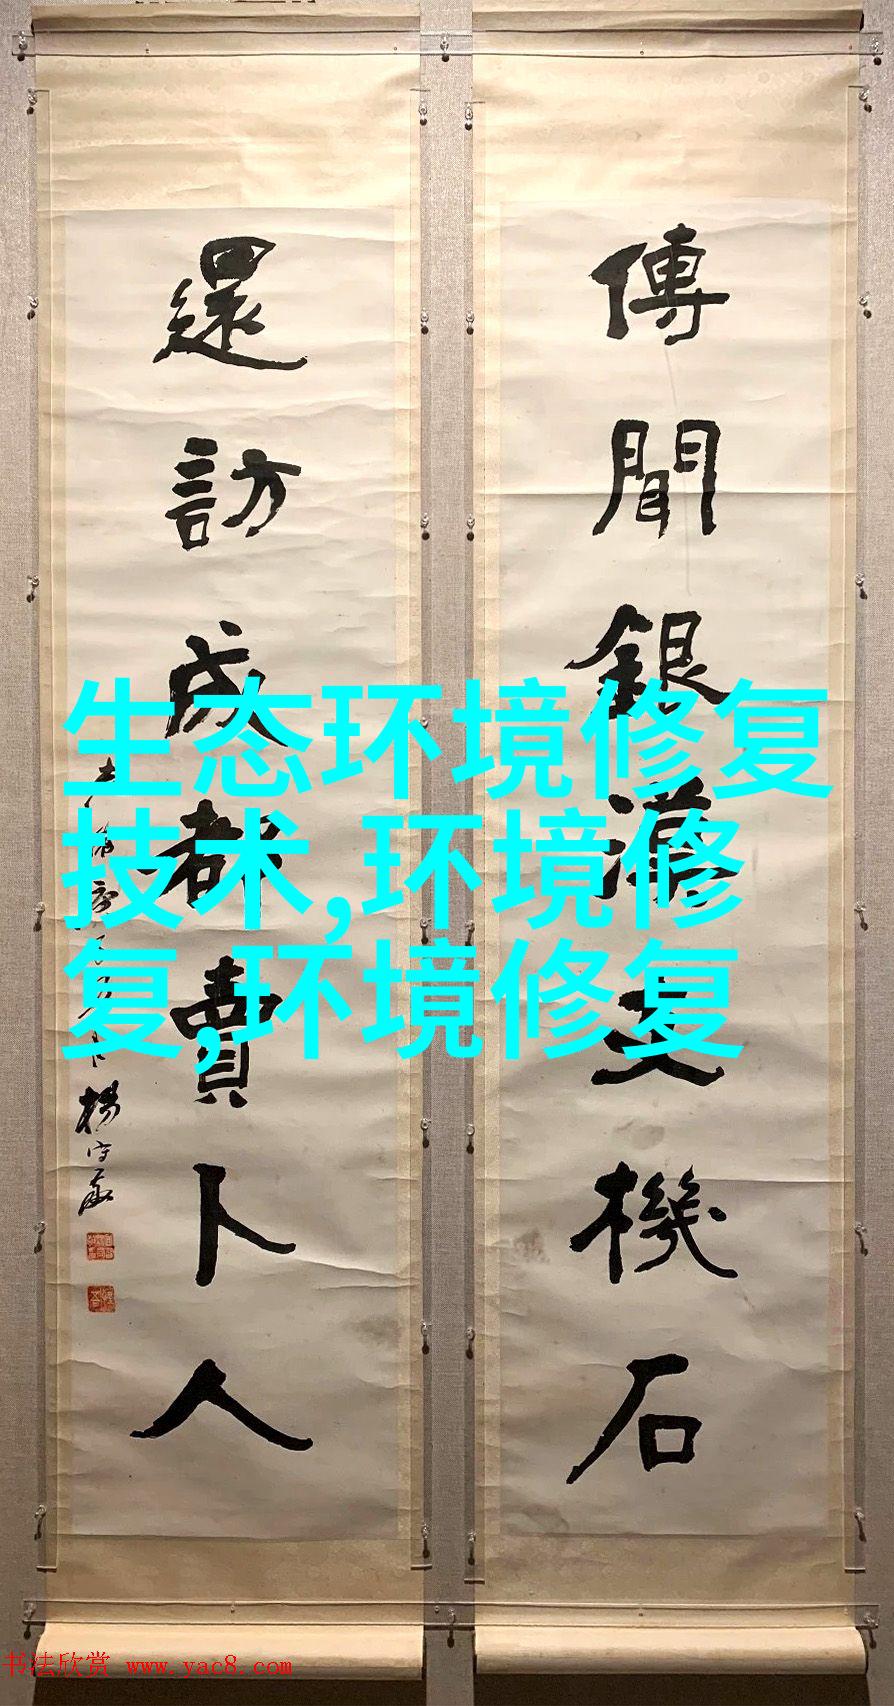 傳聞銀漢支機石
還訪成都賣卜人
楊守敬
生态环境修复
技术,环境修
复,环境修复
书法欣赏 www.yac8.com